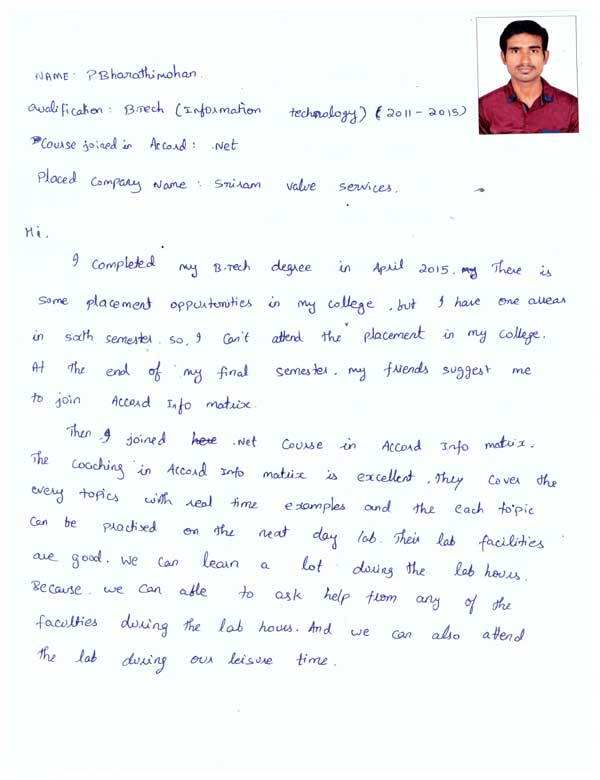 NAME: P Bharathimohan.
Qualification: B.Tech (Information technology) (2011 - 2015)
Course joined in Accord: .Net
Placed Company Name: Sriram valve services.
Hi.
I completed my B.Tech degree in April 2015. my There is
some placement oppurtunities in my college, but I have one arrear
in sixth semester. so, I can't attend the placement in my college.
At the end of my final semester, my friends suggest me
to join Accord Info matrix.
Then I joined here .Net course in Accord Info matrix.
The coaching in Accord Info matrix is excellent. They cover the
every topics with real time examples and the each topic
can be practised on the next day lab. Their lab facilities
are good. We can learn a lot during the lab hours.
Because, we can able to ask help from any of the
faculties during the lab hours. And we can also attend
the lab during our leisure time.